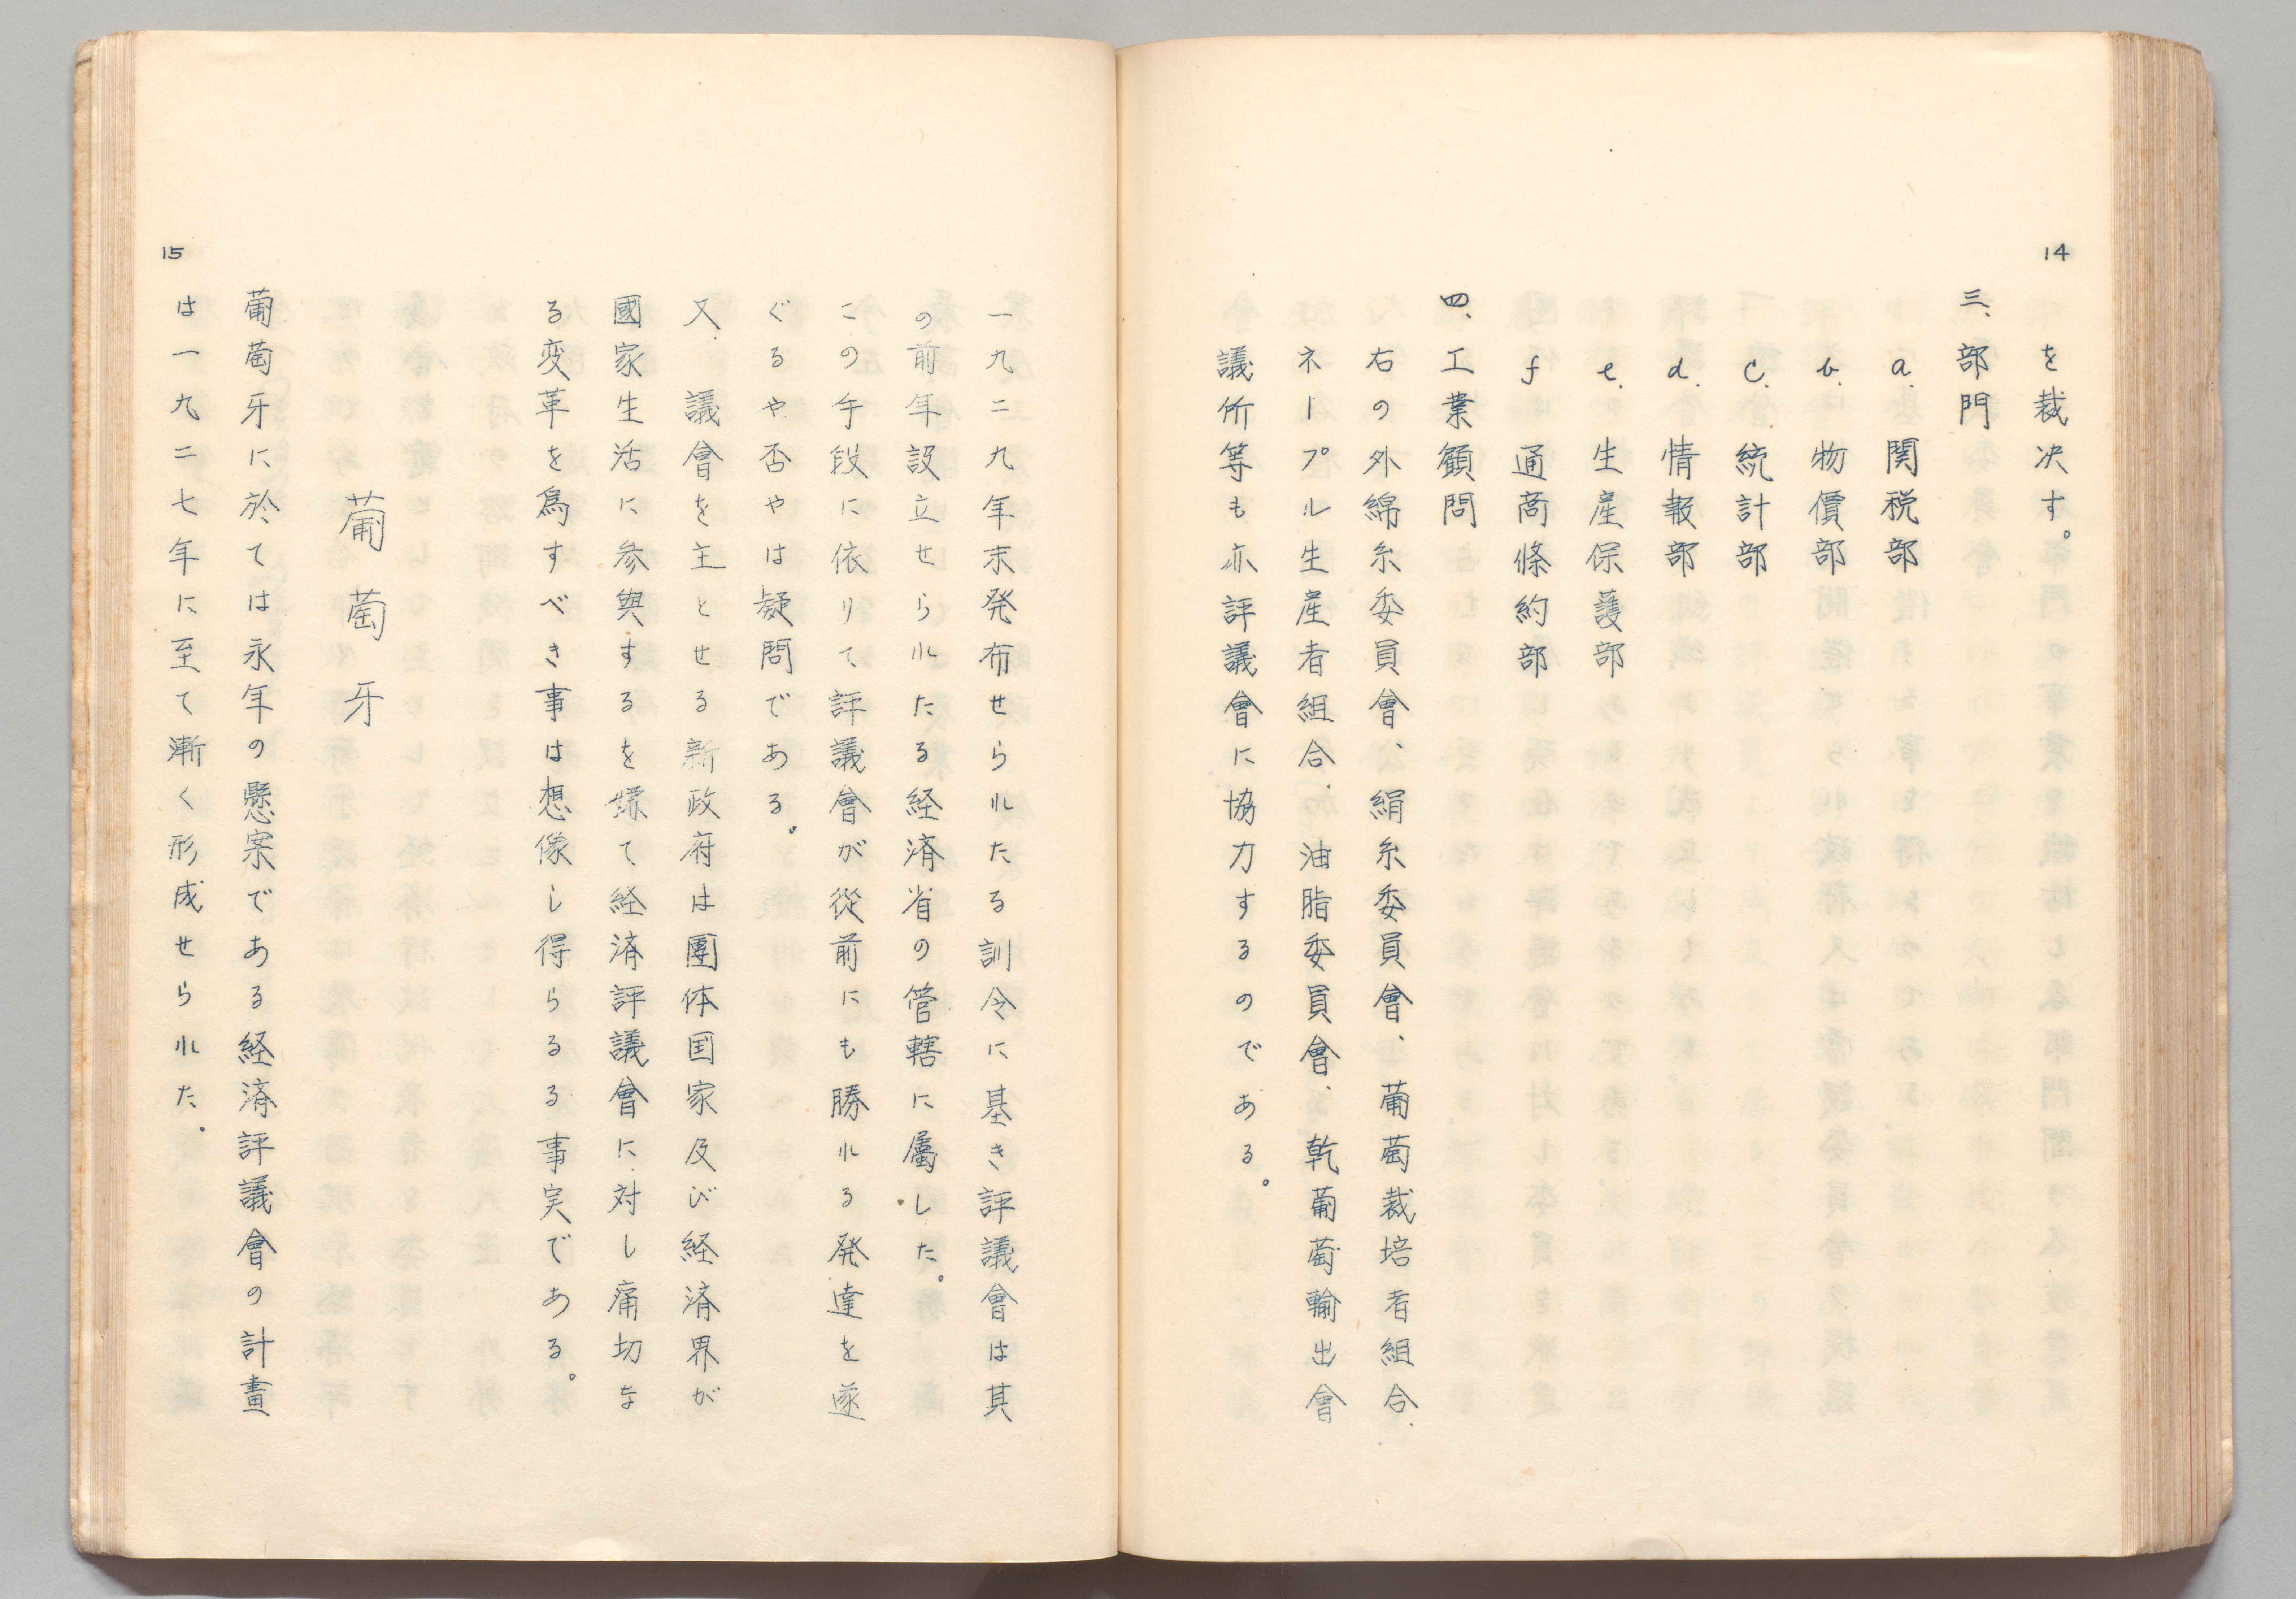 14
を裁決す。
三、部門
a. 関税部
b. 物價部
c. 統計部
d. 情報部
e. 生産保護部
f 通商條約部
四、工業顧問
右の外綿糸委員會、絹糸委員會、葡萄裁培者組合、
ネープル生産者組合、油脂委員會、乾葡萄輸出會
議所等も亦評議會に協力するのである。
一九二九年末発布せられたる訓令に基き評議會は其
の前年設立せられたる経済省の管轄に屬した。
この手段に依りて評議會が從前にも勝れる発達を遂
ぐるや否やは疑問である。
又、議會を主とせる新政府は團体国家及び経済界が
國家生活に参與するを嫌て経済評議會に対し痛切な
る変革を為すべき事は想像し得らるる事実である。
葡萄牙
葡萄牙に於ては永年の懸案である経済評議會の計畫
は一九二七年に至て漸く形成せられた。
15